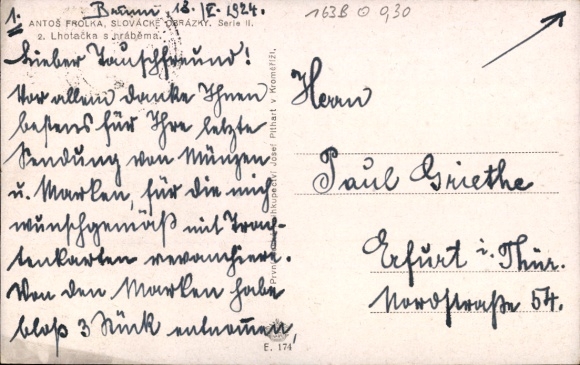 1.
Brünn, 18. IX. 1924.
ANTOŠ FROLKA, SLOVÁCKÉ OBRÁZKY. Serie II.
2. Lhotačka s hráběma.
Lieber Tauschfreund!
Vor allem danke Ihnen
bestens für Ihre letzte
Sendung von Münzen
u. Marken, für die mich
wunschgemäß mit Trach-
tenkarten revanchiere.
Von den Marken habe
bloß 3 Stück entnommen,
Josef Pithart v Kroměříži.
E. 174
163B 0,30
Herrn
Paul Griethe
Erfurt i. Thür.
Nordstraße 54.